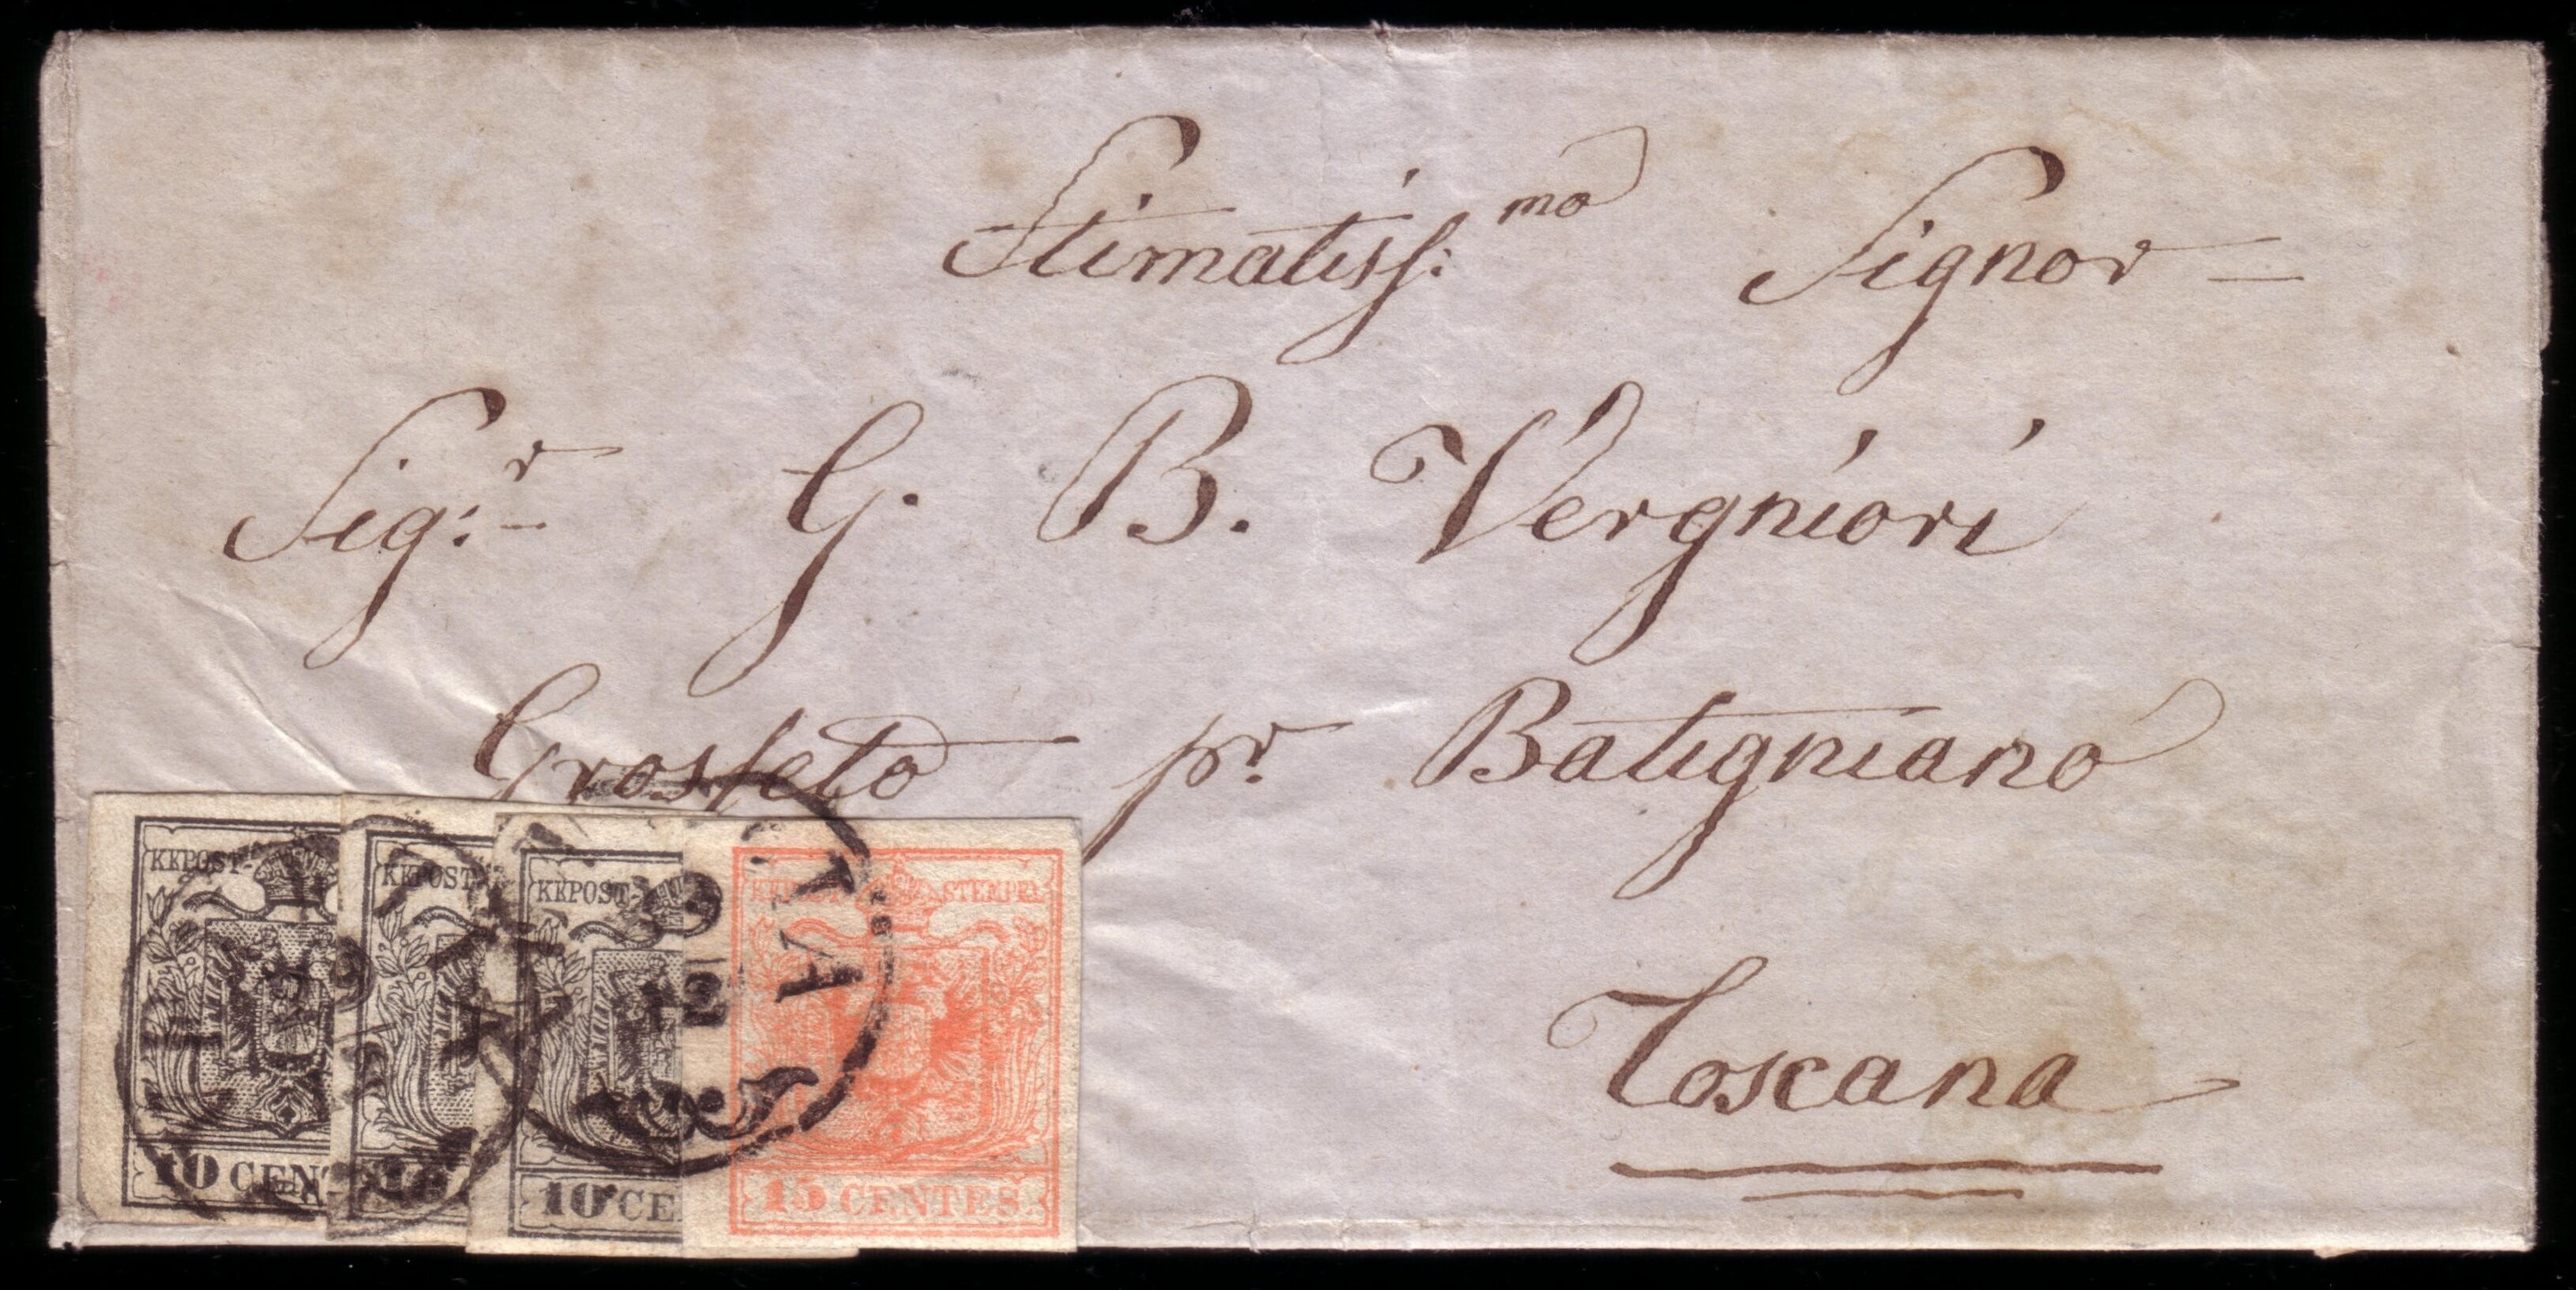 Stimatiss:mo Signor =
Sig:r G. B. Vergniori
Grosseto pr. Batigniano
Toscana
KKPOST-
10 CENT
KKPOST
10
KKPOST-
10 CE
KKPOST STEMPEL
15 CENTES.